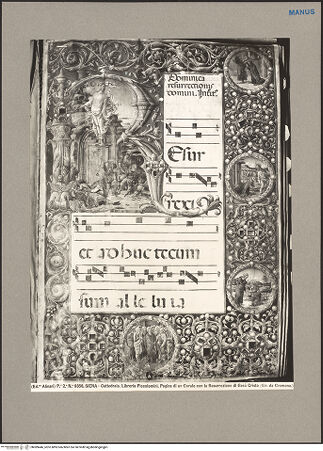 MANUS
Dominica
resurrectionis
domini. Intr.
Esur
rexi
et adhuc tecum
sum al le lu ia
(Ed.ne Alinari) P.e 2.a N.o 9056. SIENA - Cattedrale. Libreria Piccolomini. Pagina di un Corale con la Resurrezione di Gesù Cristo (Gir. da Cremona.)